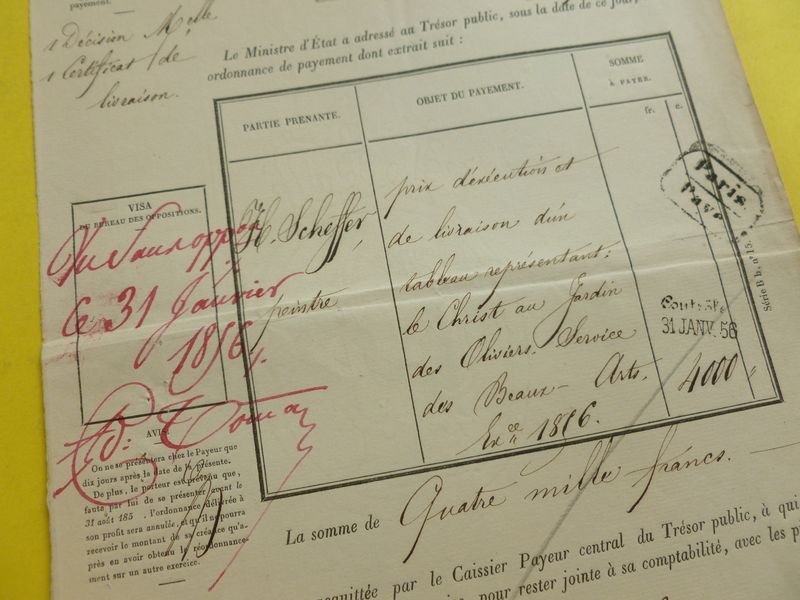 payement.
1 Décision Melle
1 Certificat de
livraison.
Le Ministre d'État a adressé au Trésor public, sous la date de ce jour,
ordonnance de payement dont extrait suit :
PARTIE PRENANTE.
OBJET DU PAYEMENT.
SOMME
À PAYER.
fr. c.
H. Scheffer,
peintre
prix d'exécution et
de livraison d'un
tableau représentant:
le Christ au Jardin
des Oliviers. Service
des Beaux-Arts.
Exce 1856.
4000 "
Paris
Paye
31 JANV. 56
Série B b, n° 15.
VISA
DU BUREAU DES OPPOSITIONS.
Vu sans oppon
le 31 Janvier
1856.
AVIS.
On ne se présentera chez le Payeur que
dix jours après la date de la présente.
De plus, le porteur est prévenu que,
faute par lui de se présenter avant le
31 août 185 , l'ordonnance délivrée à
son profit sera annulée, et qu'il ne pourra
recevoir le montant de sa créance qu'a-
près en avoir obtenu le réordonnance-
ment sur un autre exercice.
La somme de Quatre mille francs.
acquittée par le Caissier Payeur central du Trésor public, à qui
pour rester jointe à sa comptabilité, avec les